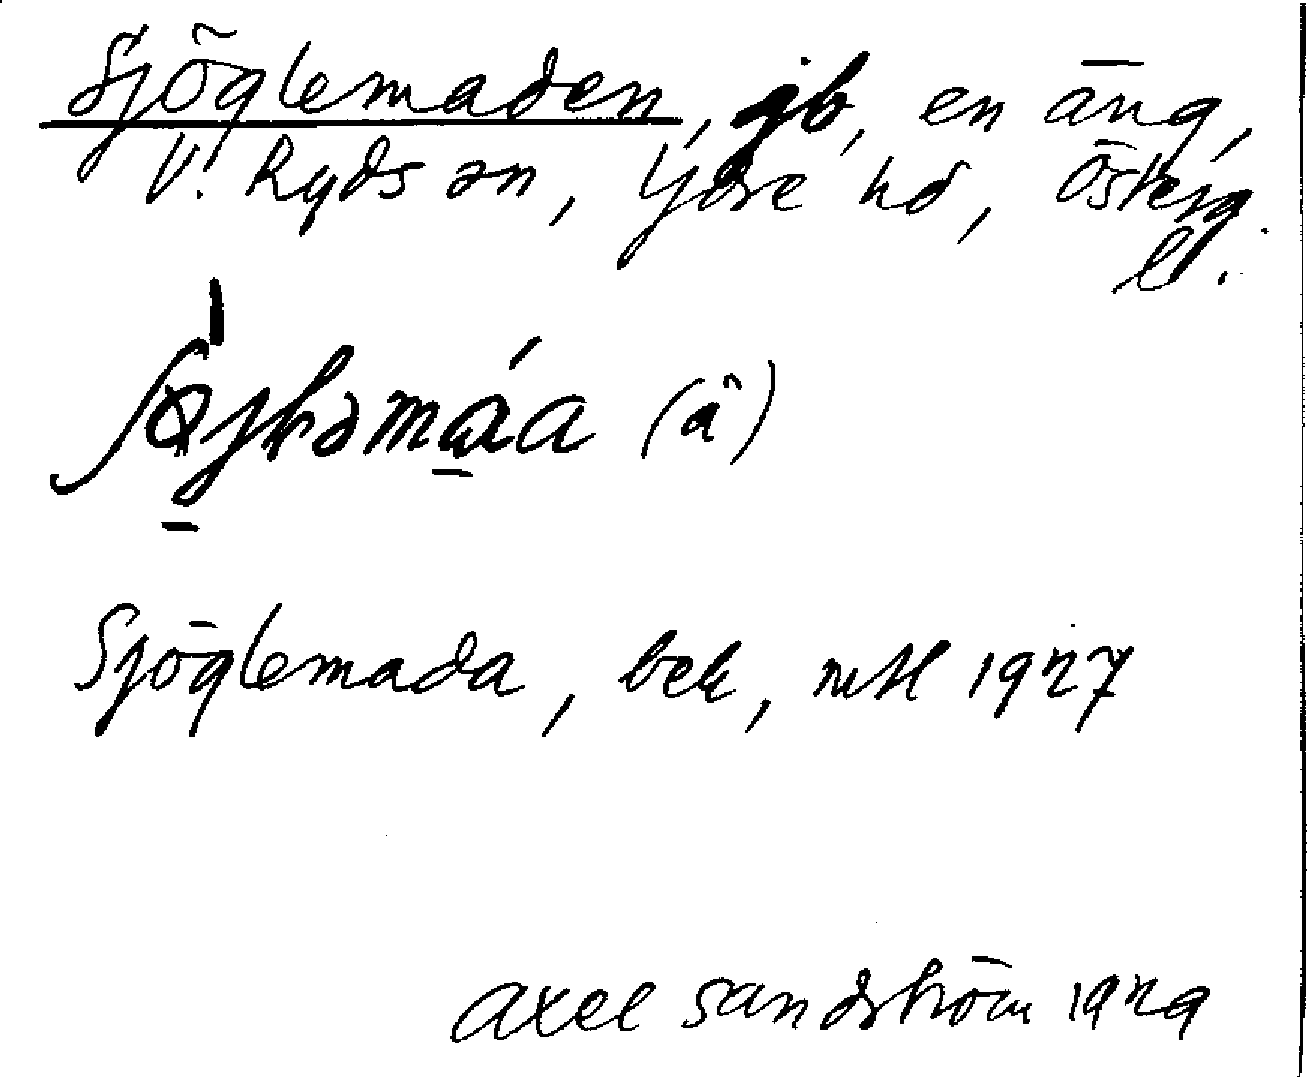 Sjöglemaden, gb, en äng,
V. Ryds sn, Ydre hd, Österg.
l.
(â)
Sjöglemada, bek, mtl 1927
Axel Sandström 1929